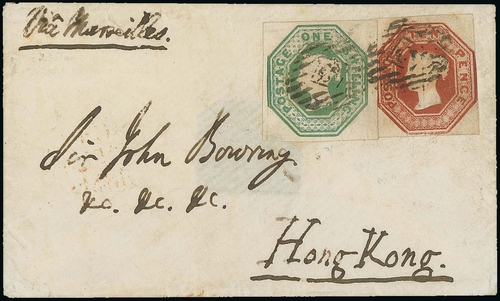 Viâ Marseilles.
POSTAGE ONE SHILLING
POSTAGE PENCE
Sir John Bowring
&c. &c. &c.
Hong Kong.